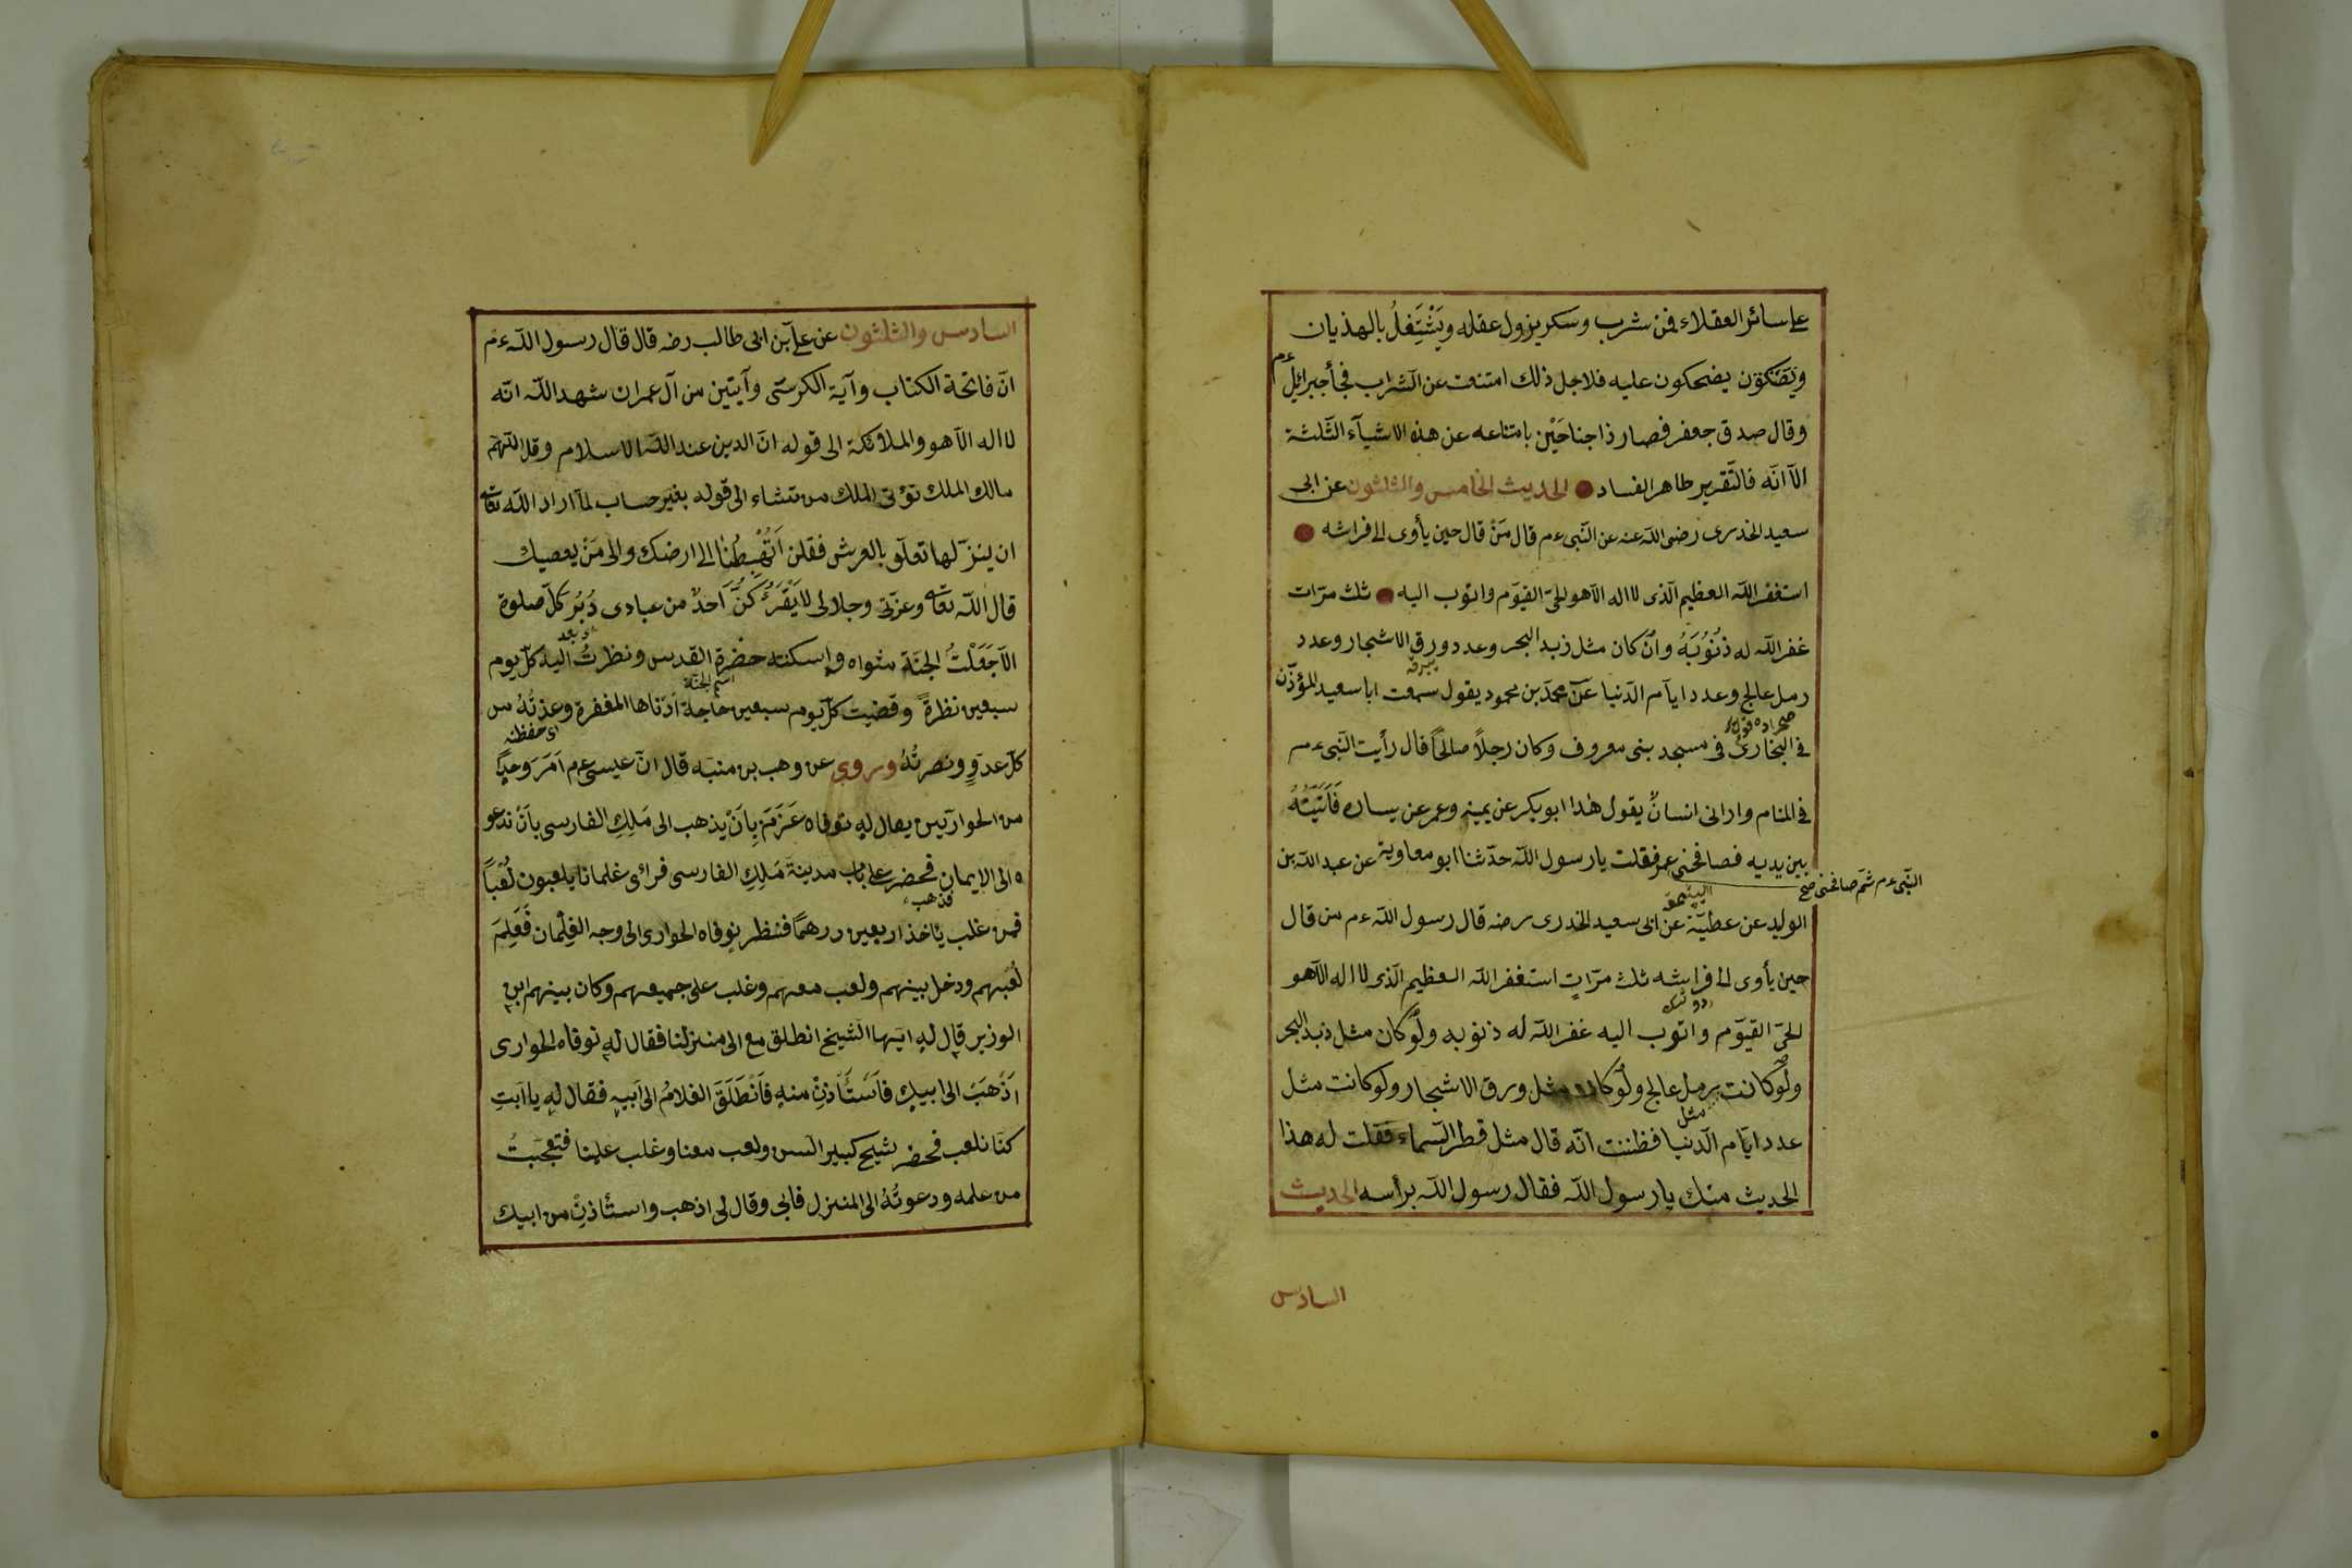 على سائر العقلاء فمن شرب وسكر يزول عقله ويَشْتَغِلُ بالهذيان
يضحكون عليه فلاجل ذلك امتنعت عن الشراب فجأ جبرائيل ءم
وقال صدق جعفر فصار ذا جناحَيْن بامتناعه عن هذه الاشيآء الثَّلثة
الآ انّه فالتّقرير ظاهر الفساد الحديث الخامس والثلثون عن ابى
سعيد الخدرى رضى اللّه عنه عن النّبى ءم قال مَنْ قال حين يأوى الى فراشه
استغفر اللّه العظيم الّذى لا اله الّا هو الحىّ القيّوم واتوب اليه ثلث مرّات
غفر اللّه له ذُنُوبَهُ وانْ كان مثل زبد البحر وعدد ورق الاشجار وعدد
رمل عالج وعدد ايآم الدّنيا عَنْ محمّد بن محمود يقول سمعت ابا سعيد المؤذّن
فى البخارىّ فى مسجد بنى معروف وكان رجلاً صالحًا قال رأيت النّبى ءم
فى المنام وارانى انسانٌ يقول هٰذا ابو بكر عن يمينه وعمر عن يساره فَأَتَيْتُهُ
بين يديه فصافحنى عمر فقلت يا رسول اللّه حدّثنا ابو معاوية عن عبد اللّه بن
النّبى ءم ثمّ صافحنى صح
الوليد عن عطيّة عن ابى سعيد الخدرى رضه قال رسول اللّه ءم من قال
حين يأوى الى فراشه ثلث مرّاتٍ استغفر اللّه العظيم الّذى لا اله الّا هو
الحىّ القيّوم واتوب اليه غفر اللّه له ذنوبه ولو كان مثل زبد البحر
ولو كانت برمل عالج ولو كان مثل ورق الاشجار ولو كانت مثل
مثل
عدد ايّام الدّنيا فظننت انّه قال مثل قطر السّماء فقلت له هذا
الحديث منك يا رسول اللّه فقال رسول اللّه برأسه الحديث
السادس
السادس والثلثون عن علىّ بن ابى طالب رضه قال قال رسول اللّه ءم
انّ فاتحة الكتاب وآية الكرسّى وآيتين من آل عمران شهد اللّه انّه
لا اله الّا هو والملائكة الى قوله انّ الدين عند اللّه الاسلام وقل اللّهمّ
مالك الملك تؤتى الملك من تشاء الى قوله بغير حساب لمآ اراد اللّه تعا
ان ينزّلها تعلّق بالعرش فقلن اَتُهْبِطُنَا الى ارضك والى مَنْ يعصيك
قال اللّه تعا وعزّتى وجلالى لا يَقْرَؤُكُنَّ اَحدٌ من عبادى دُبُر كلّ صلوة
بعد
الّا جَعَلْتُ الجنّة مثواه واسكنته حضرة القدس ونظرتُ اليه كلّ يوم
اسم الجنّة
سبعين نظرةً وقضيت كلّ يوم سبعين حاجة اَدْناها المغفرة وعذتُهُ من
اى حفظته
كلّ عدوٍّ ونصرتُهُ وروى عن وهب بن منبّه قال انّ عيسى ءم اَمَرَ
من الحواريّين يقال له توفاه عَزَمَ بِاَنْ يذهب الى مَلِكِ الفارسى بأَنْ تدعو
ه الى الايمان فحضر على باب مدينة مَلِكِ الفارسى فرائ غلمانا يلعبون لُعْباً
فذهب
فمن غلب يأخذ اربعين درهماً فنظر توفاه الحوارى الى وجه الغِلْمان فَعَلِمَ
لُعَبهم ودخل بينهم ولعب معهم وغلب على جميعهم وكان بينهم ابن
الوزير قال له ايّها الشيخ انطلق مع الى منزلنا فقال له توفاه الحوارى
اَذْهَبَ الى ابيك فاَسْتَأذِنْ منه فَانْطَلَقَ الغلامُ الى اَبيه فقال له يا ابتِ
كنّا نلعب فحضر شيخ كبير السن ولعب معنا وغلب علينا فتعجّبتُ
من علمه ودعوتُهُ الى المنزل فابى وقال لى اذهب واستأذِنْ من ابيك